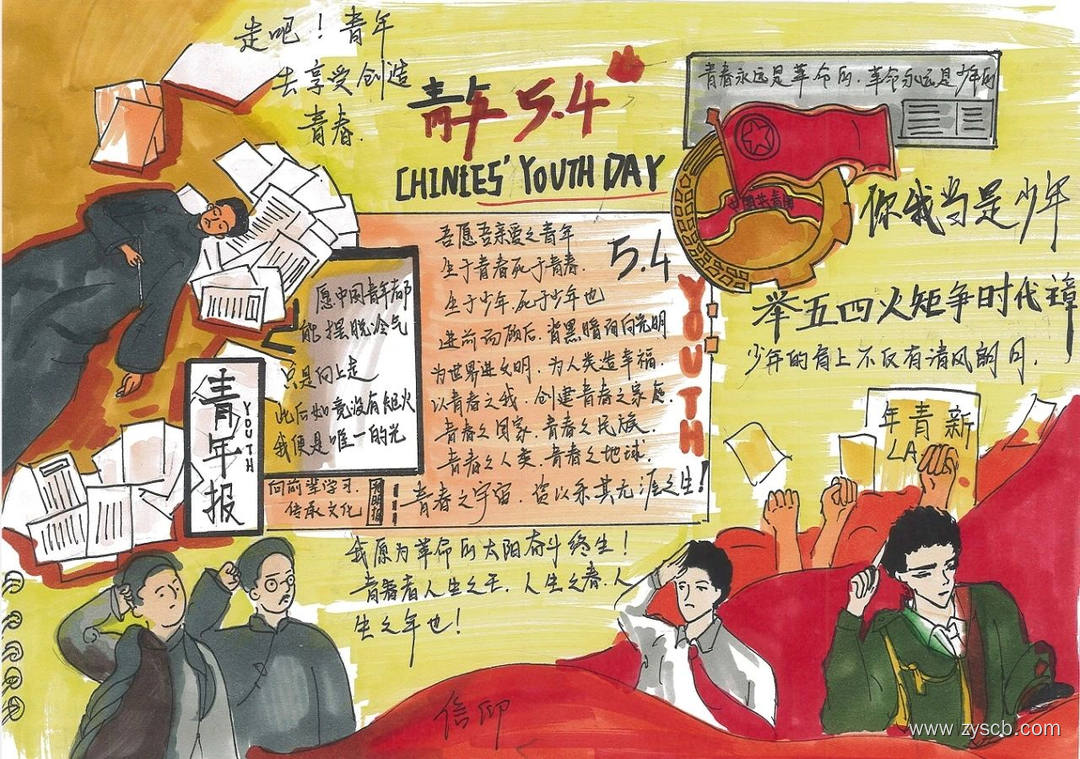 走吧！青年
去享受创造
青春.
青年 5.4
CHINIES' YOUTH DAY
青春永远是革命的.革命永远是少年的
中国共青团
你我当是少年
举五四火炬争时代
少年的肩上不仅有清风朗月.
吾愿吾亲爱之青年
生于青春死于青春.
生于少年,死于少年也
进前而顾后,背黑暗而向光明
为世界进文明,为人类造幸福.
以青春之我,创建青春之家庭
青春之国家.青春之民族.
青春之人类.青春之地球.
青春之宇宙.资以乐其无涯之生!
5.4
YOUTH
愿中国青年都
能摆脱冷气
只是向上走
此后如竟没有炬火
我便是唯一的光
青年报
YOUTH
向前辈学习.
传承文化
我愿为革命的太阳奋斗终生!
青春者人生之王,人生之春,人
生之年也!
年青新
LA
信仰
www.zyscb.com